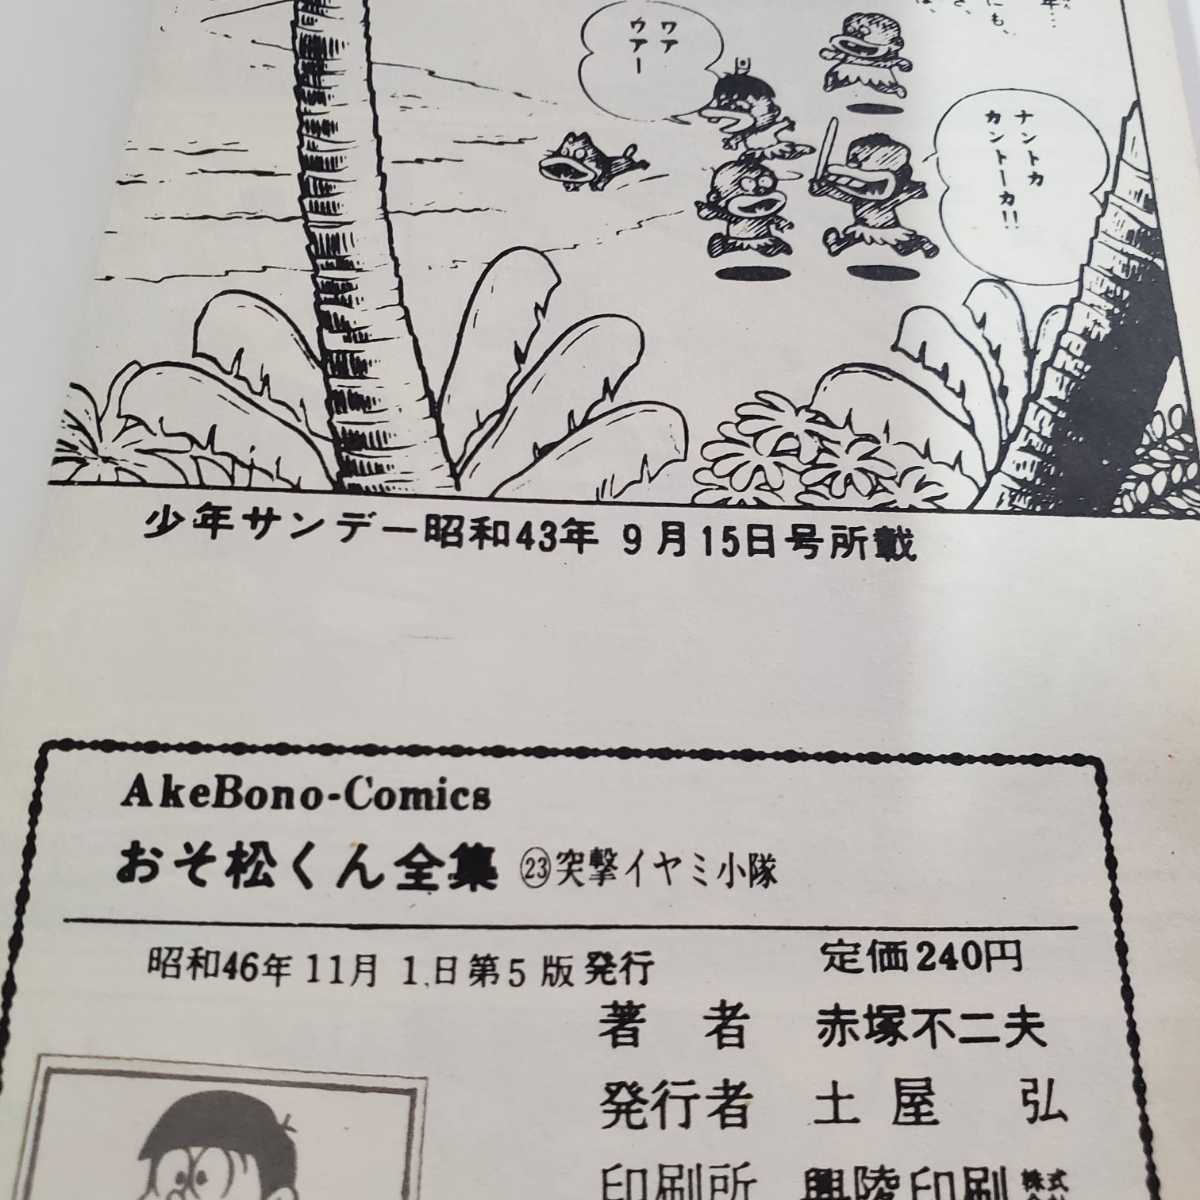 ワア
ウアー
ナントカ
カントーカ!!
少年サンデー昭和43年 9月15日号所載
AkeBono-Comics
おそ松くん全集 ㉓突撃イヤミ小隊
昭和46年11月 1.日第5版発行 定価240円
著 者 赤塚不二夫
発行者 土屋 弘
印刷所 興陵印刷 株式